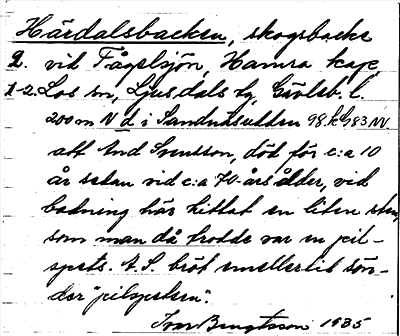 Härdalsbacken, skogsbacke
2. vid Fågelsjön, Hamra kap.
1-2. Los sn, Ljusdals tg, Gävleb. l.
200 m N d i Sandnäsudden 98. k G83 NV.
att And Svensson, död för c:a 10
år sedan vid c:a 70-års ålder, vid
badning här hittat en liten sten,
som man då trodde var en pil-
spets. A. S. bröt emellertid sön-
der "pilspetsen".
Ivar Bengtsson 1935